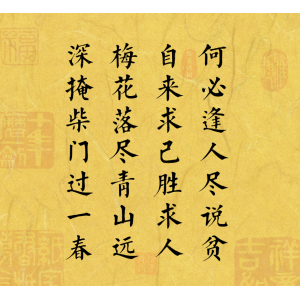 何必逢人尽说贫
自来求己胜求人
梅花落尽青山远
深掩柴门过一春